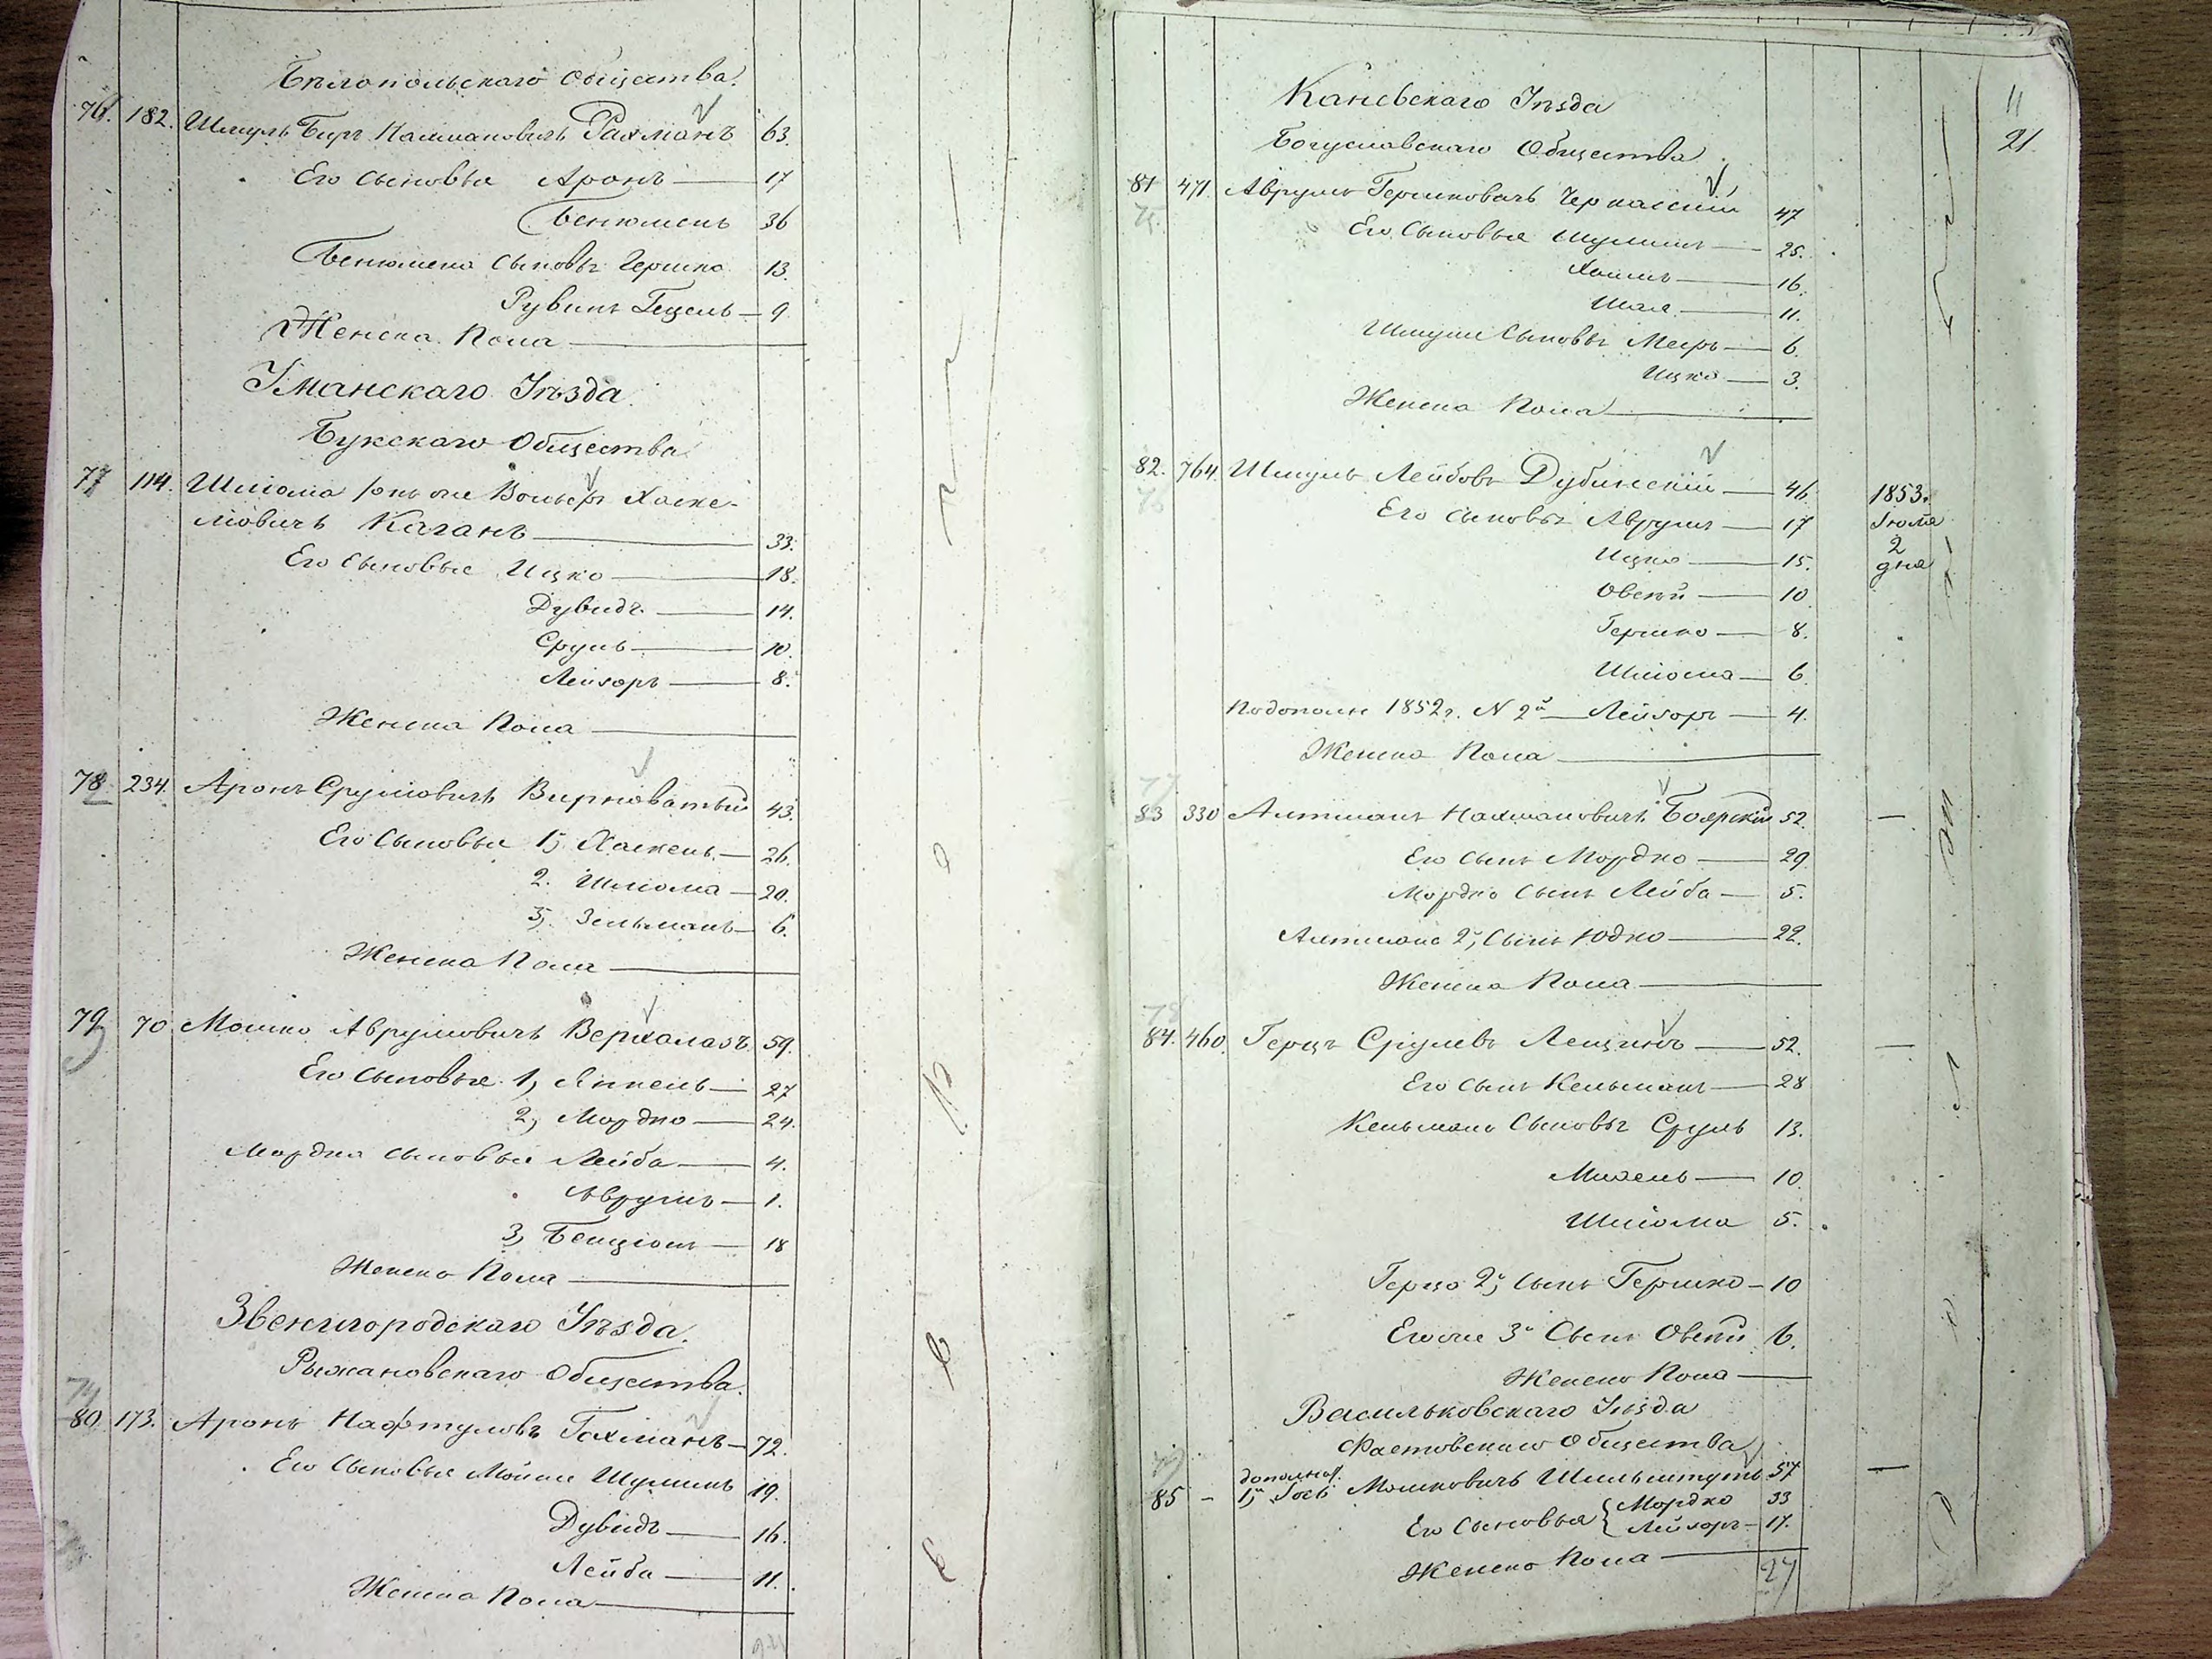 Бѣлопольскаго Общества
76. 182. Шмуль Беръ Нахмановичъ Рахманъ 63.
Его Сыновья Аронъ 17
Бенюменъ 36
Бенюмена Сыновья Гершко 13.
Рувинъ Гецель 9
Женска Пола
Уманскаго Уѣзда
Букскаго Общества
77 114. Шлiома онъ же Вольфъ Хаске-
лiовичъ Каганъ 33.
Его Сыновья Ицко 18.
Дувидъ 14.
Сруль 10.
Лейзоръ 8.
Женска Пола
78 234. Аронъ Срулiовичъ Вирноватый 43.
Его Сыновья 1, Хаскель 26.
2. Шлiома 20.
3, Зельманъ 6.
Женска Пола
79 70 Мошко Аврумовичъ Верхолазъ 59.
Его Сыновья 1, Янкель 27
2, Мордко 24.
Мордка Сыновья Лейба 4.
Аврумъ 1.
3, Бенцiонъ 18
Женска Пола
Звенигородскаго Уѣзда.
Рыжановскаго Общества.
74
80. 173. Аронъ Нафтуловъ Гохманъ 72.
Его Сыновья Мойше Шулимъ 19.
Дувидъ 16.
Лейба 11.
Женска Пола
11
21.
Каневскаго Уѣзда
Богуславскаго Общества
81 471. Аврумъ Гершковичъ Черкасскiй 47
75.
Его Сыновья Шулимъ 25.
Хаимъ 16.
Шая 11.
Шулима Сыновья Мееръ 6.
Ицко 3.
Женска Пола
82. 764. Шмуль Лейбовъ Дубинскiй 46 1853.
76
Его Сыновья Аврумъ 17 Iюля
Ицко 15. 2
дня
Овсѣй 10
Гершко 8.
Шлiома 6
Подополн 1852 г. N 2й Лейзоръ 4.
Женска Пола
77
83 330 Алтманъ Нахмановичъ Боярскiй 52. —
Его Сынъ Мордко 29
Мордка Сынъ Лейба 5.
Алтмана 2й Сынъ Юдко 22.
Женска Пола
78
84. 460. Герцъ Срулевъ Лещинъ 52. —
Его Сынъ Кельманъ 28
Кельмана Сыновья Сруль 13.
Михель 10
Шлiома 5.
Герца 2й Сынъ Гершко 10
Его же 3й Сынъ Овсѣй 6.
Женска Пола
Васильковскаго Уѣзда
Фастовскаго Общества
79
дополнит.
85 - 1й Iось Мошковичъ Шильштутъ 57 —
Его Сыновья { Мордко 33
Лейзоръ 17.
Женска Пола
27